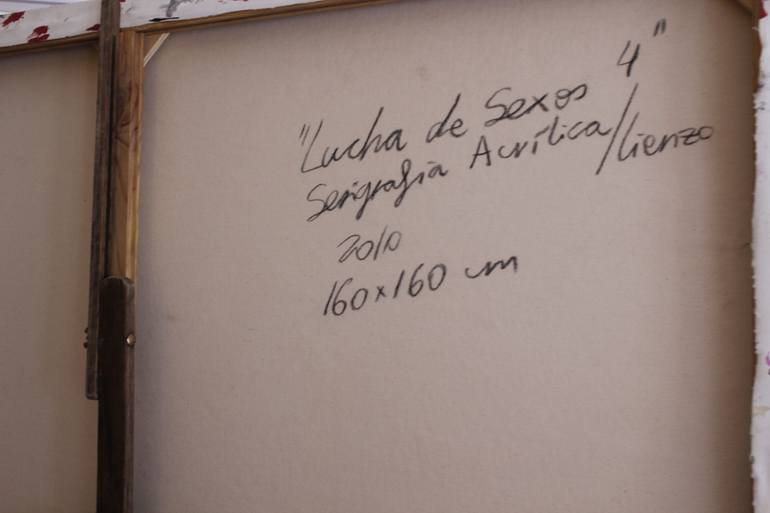 "Lucha de Sexos 4"
Serigrafia Acrílica/lienzo
2010
160x160 cm